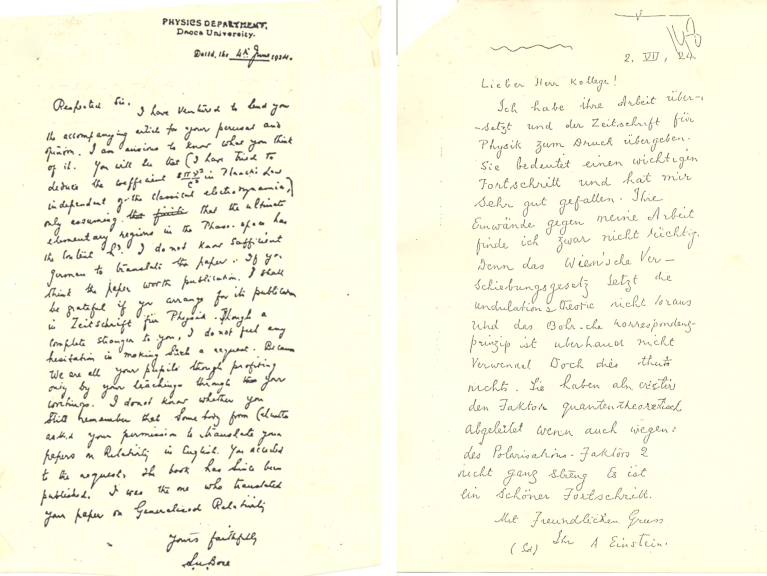 PHYSICS DEPARTMENT,
Dacca University.
Dated, the 4th June 1924.
Respected Sir, I have ventured to send you
the accompanying article for your perusal and
opinion. I am anxious to know what you think
of it. You will see that I have tried to
deduce the coefficient 8πν²/c³ in Planck's Law
independent of the classical electrodynamics,
only assuming that the ultimate
elementary regions in the Phase-space has
the content h³. I do not know sufficient
german to translate the paper. If you
think the paper worth publication, I shall
be grateful if you arrange for its publication
in Zeitschrift für Physik. Though a
complete stranger to you, I do not feel any
hesitation in making such a request. Because
we are all your pupils though profiting
only by your teachings through your
writings. I donot know whether you
still remember that somebody from Calcutta
asked your permission to translate your
papers on Relativity in English. You acceded
to the request. The book has since been
published. I was the one who translated
your paper on Generalised Relativity
Yours faithfully
S.N.Bose
2. VII, 24.
Lieber Herr Kollege!
Ich habe ihre Arbeit über-
-setzt und der Zeitschrift für
Physik zum Druck übergeben.
Sie bedeutet einen wichtigen
Fortschritt und hat mir
sehr gut gefallen. Ihre
Einwände gegen meine Arbeit
finde ich zwar nicht richtig.
Denn das Wien'sche Ver-
schiebungsgesetz setzt die
undulations theorie nicht voraus
und das Bohr-che Korrespondenz-
prinzip ist uberhaupt nicht
verwendet Doch dies thut
nichts. Sie haben als erster
den Faktor quantentheoretisch
abgeleitet wenn auch wegen
des Polarisations-Faktors 2
nicht ganz streng Es ist
ein Schöner Fortschritt.
Mit Freundlichen Gruss
(Sd) Ihr A Einstein.